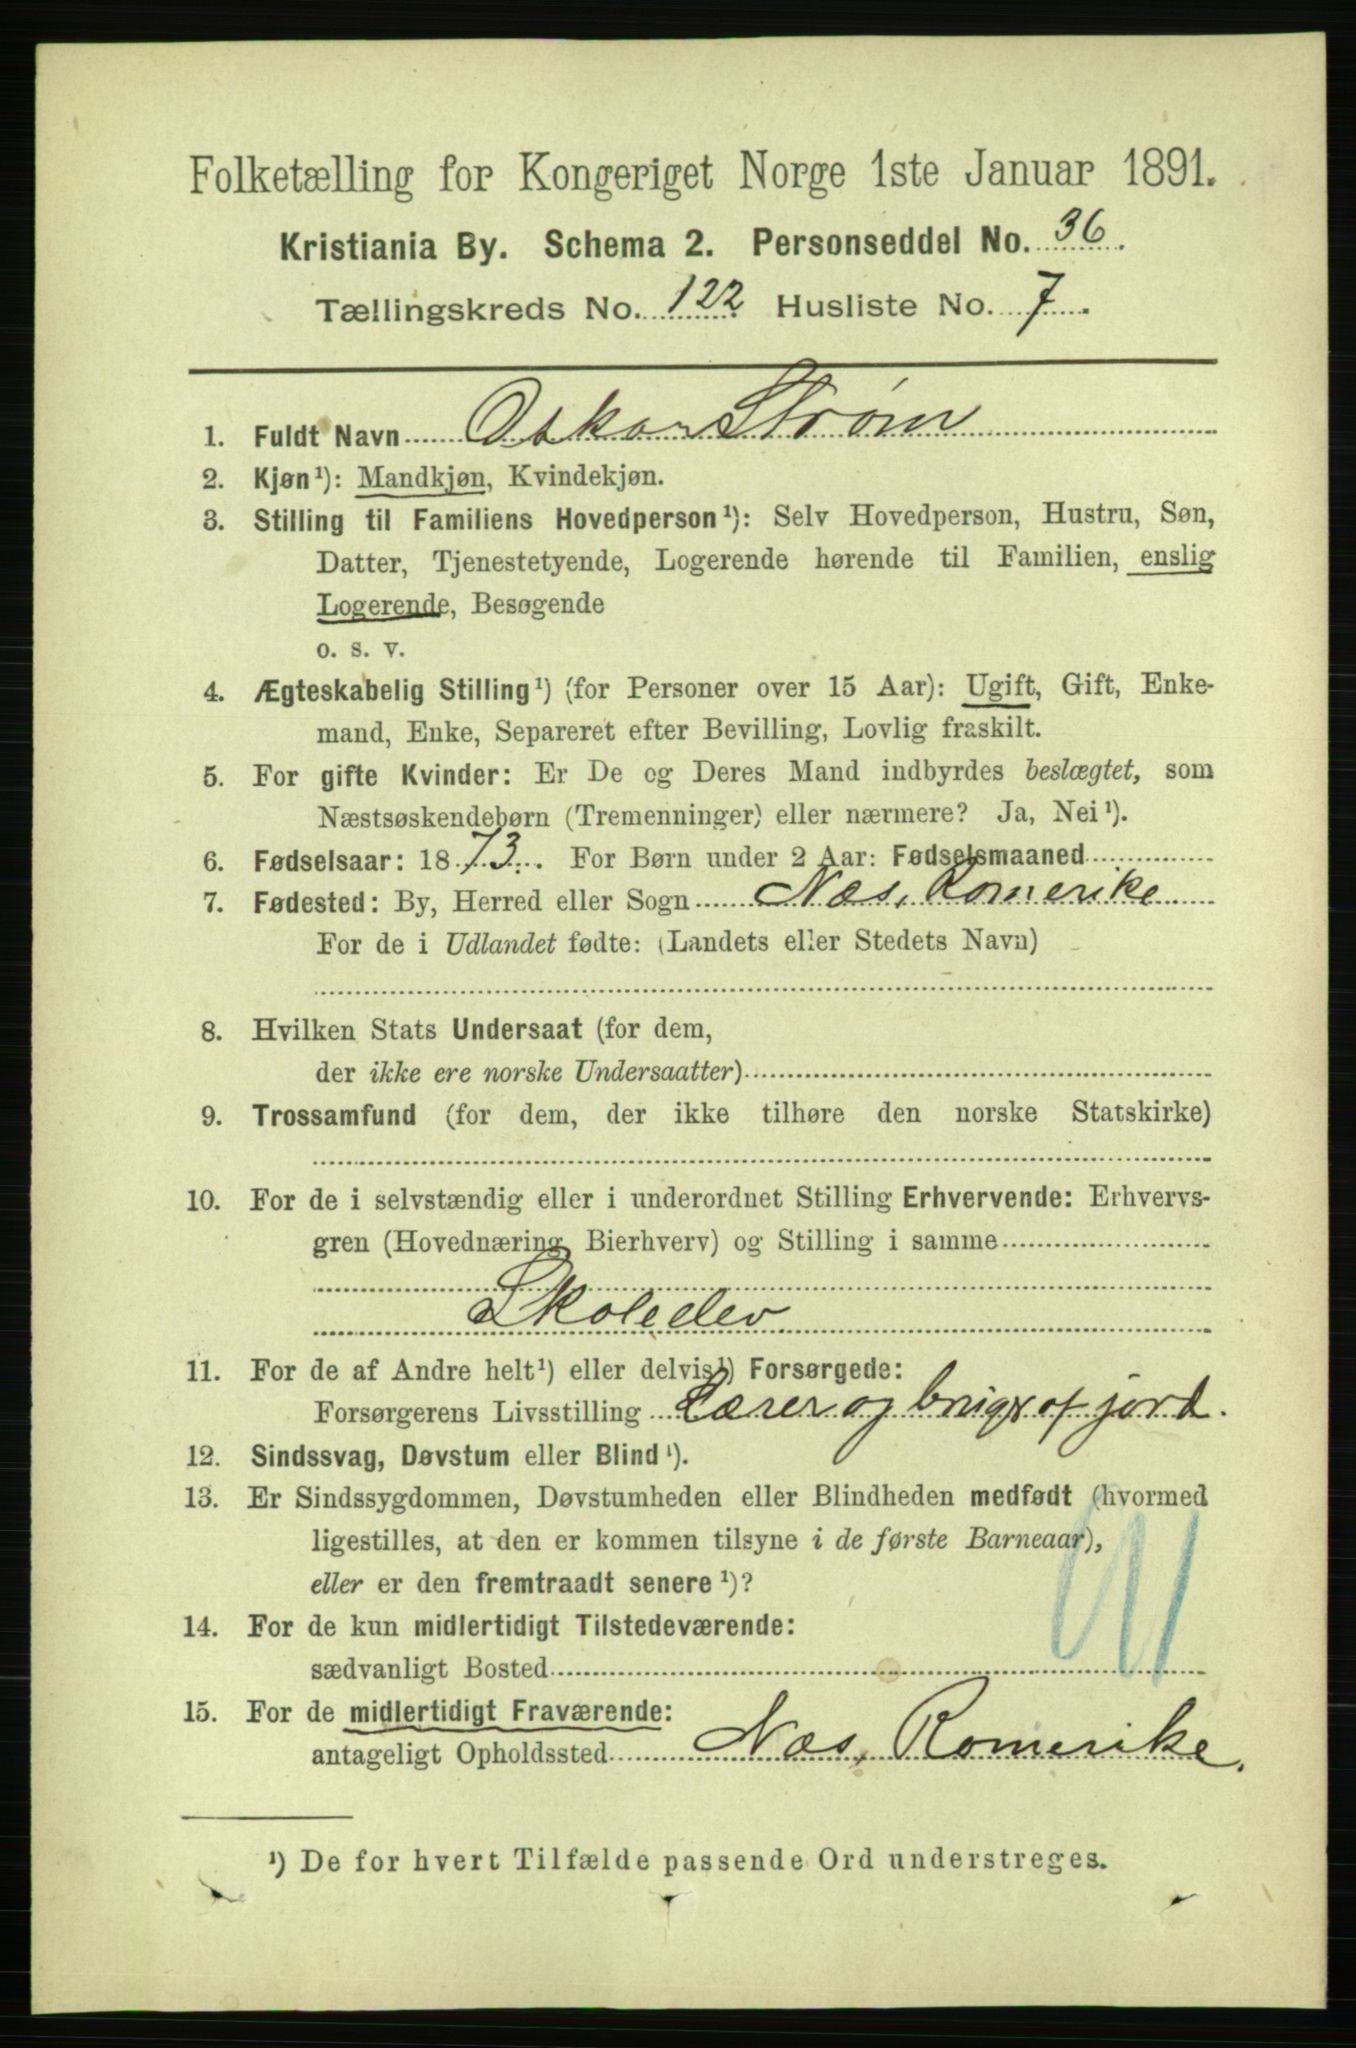 Folketælling for Kongeriget Norge 1ste Januar 1891.
Kristiania By. Schema 2. Personseddel No. 36.
Tællingskreds No. 122 Husliste No. 7.
1. Fuldt Navn Oskar Strøm
2. Kjøn¹): Mandkjøn, Kvindekjøn.
3. Stilling til Familiens Hovedperson¹): Selv Hovedperson, Hustru, Søn,
Datter, Tjenestetyende, Logerende hørende til Familien, enslig
Logerende, Besøgende
o. s. v.
4. Ægteskabelig Stilling¹) (for Personer over 15 Aar): Ugift, Gift, Enke-
mand, Enke, Separeret efter Bevilling, Lovlig fraskilt.
5. For gifte Kvinder: Er De og Deres Mand indbyrdes beslægtet, som
Næstsøskendebørn (Tremenninger) eller nærmere? Ja, Nei¹).
6. Fødselsaar: 1873. For Børn under 2 Aar: Fødselsmaaned
7. Fødested: By, Herred eller Sogn Næs, Romerike
For de i Udlandet fødte: (Landets eller Stedets Navn)
8. Hvilken Stats Undersaat (for dem,
der ikke ere norske Undersaatter)
9. Trossamfund (for dem, der ikke tilhøre den norske Statskirke)
10. For de i selvstændig eller i underordnet Stilling Erhvervende: Erhvervs-
gren (Hovednæring, Bierhverv) og Stilling i samme
Skoleelev
11. For de af Andre helt¹) eller delvis¹) Forsørgede:
Forsørgerens Livsstilling Lærer og brug af jord.
12. Sindssvag, Døvstum eller Blind¹).
13. Er Sindssygdommen, Døvstumheden eller Blindheden medfødt (hvormed
ligestilles, at den er kommen tilsyne i de første Barneaar),
eller er den fremtraadt senere¹)?
14. For de kun midlertidigt Tilstedeværende:
sædvanligt Bosted
15. For de midlertidigt Fraværende:
antageligt Opholdssted Næs, Romerike.
¹) De for hvert Tilfælde passende Ord understreges.